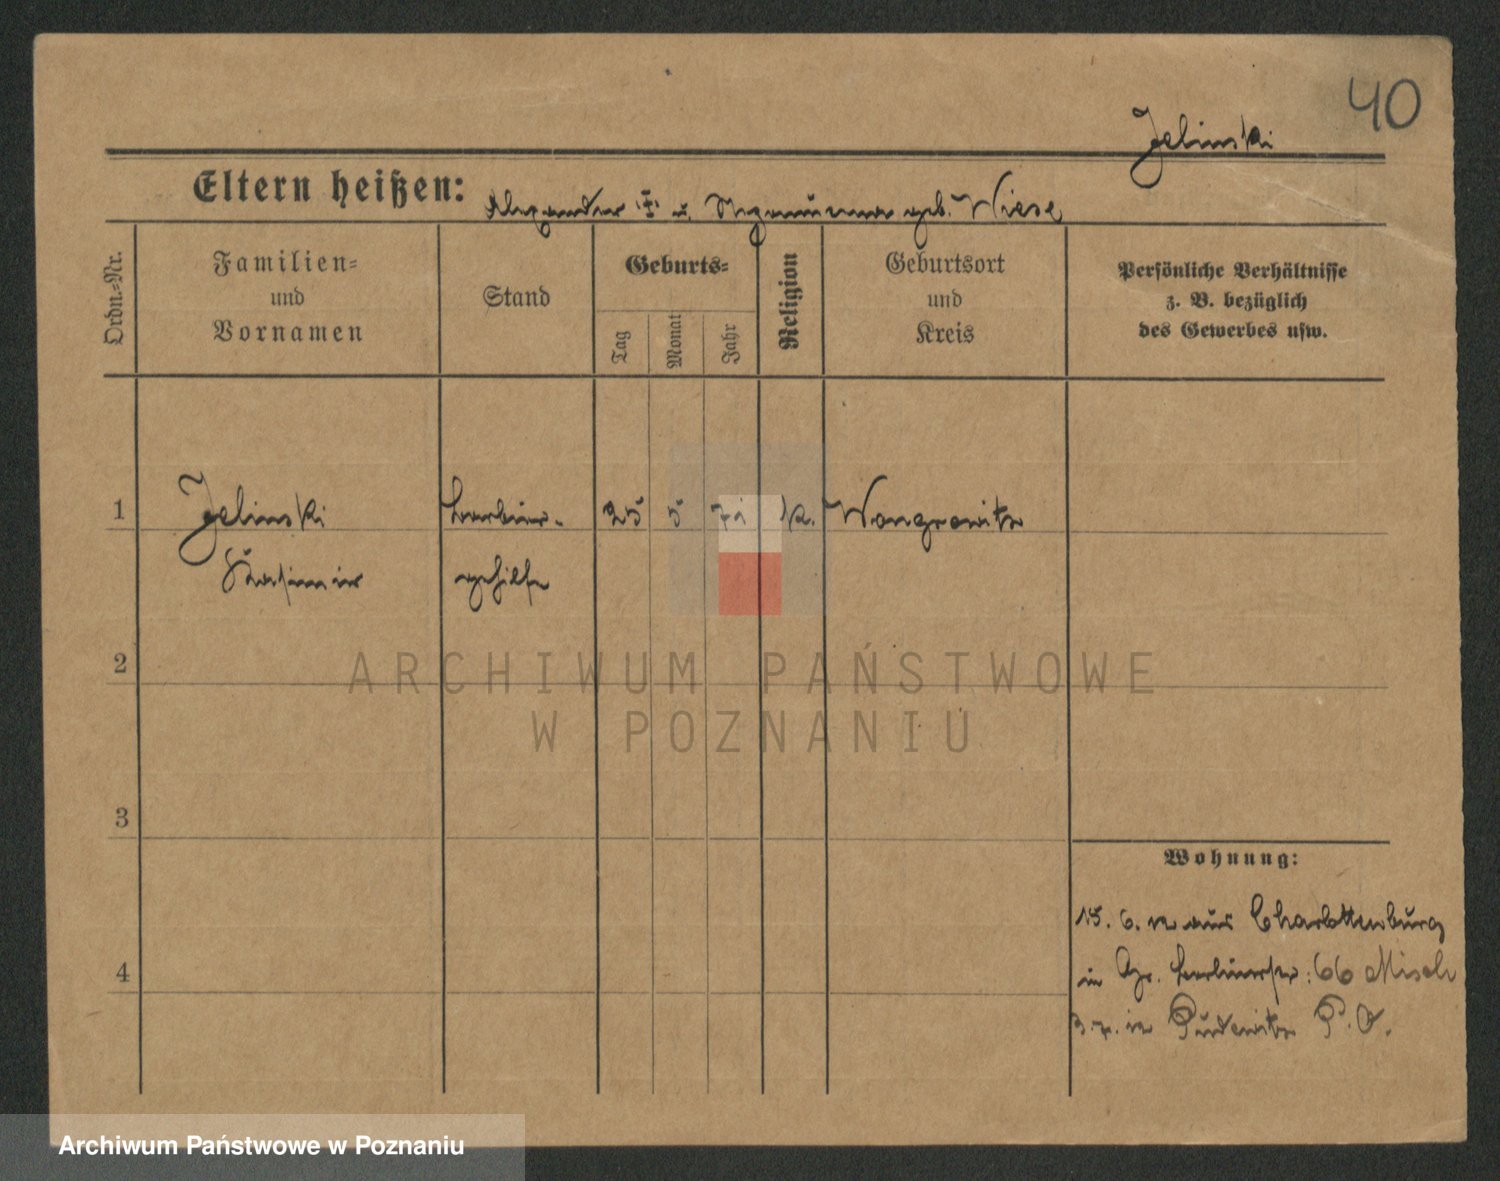 40
Jelinski
Eltern heißen: Alexander † u. geb. Wiese
Ordn.-Nr.
Familien-
und
Vornamen
Stand
Geburts-
Tag
Monat
Jahr
Religion
Geburtsort
und
Kreis
Persönliche Verhältnisse
z. B. bezüglich
des Gewerbes usw.
1 Jelinski Barbier- 25 5 k. Wongrowitz
Kasimir gehilfe
2
ARCHIWUM PAŃSTWOWE
W POZNANIU
3
Wohnung:
15. 6. aus Charlottenburg
4
in 66 Misch
3. 7. in Pudewitz P. O.
Archiwum Państwowe w Poznaniu